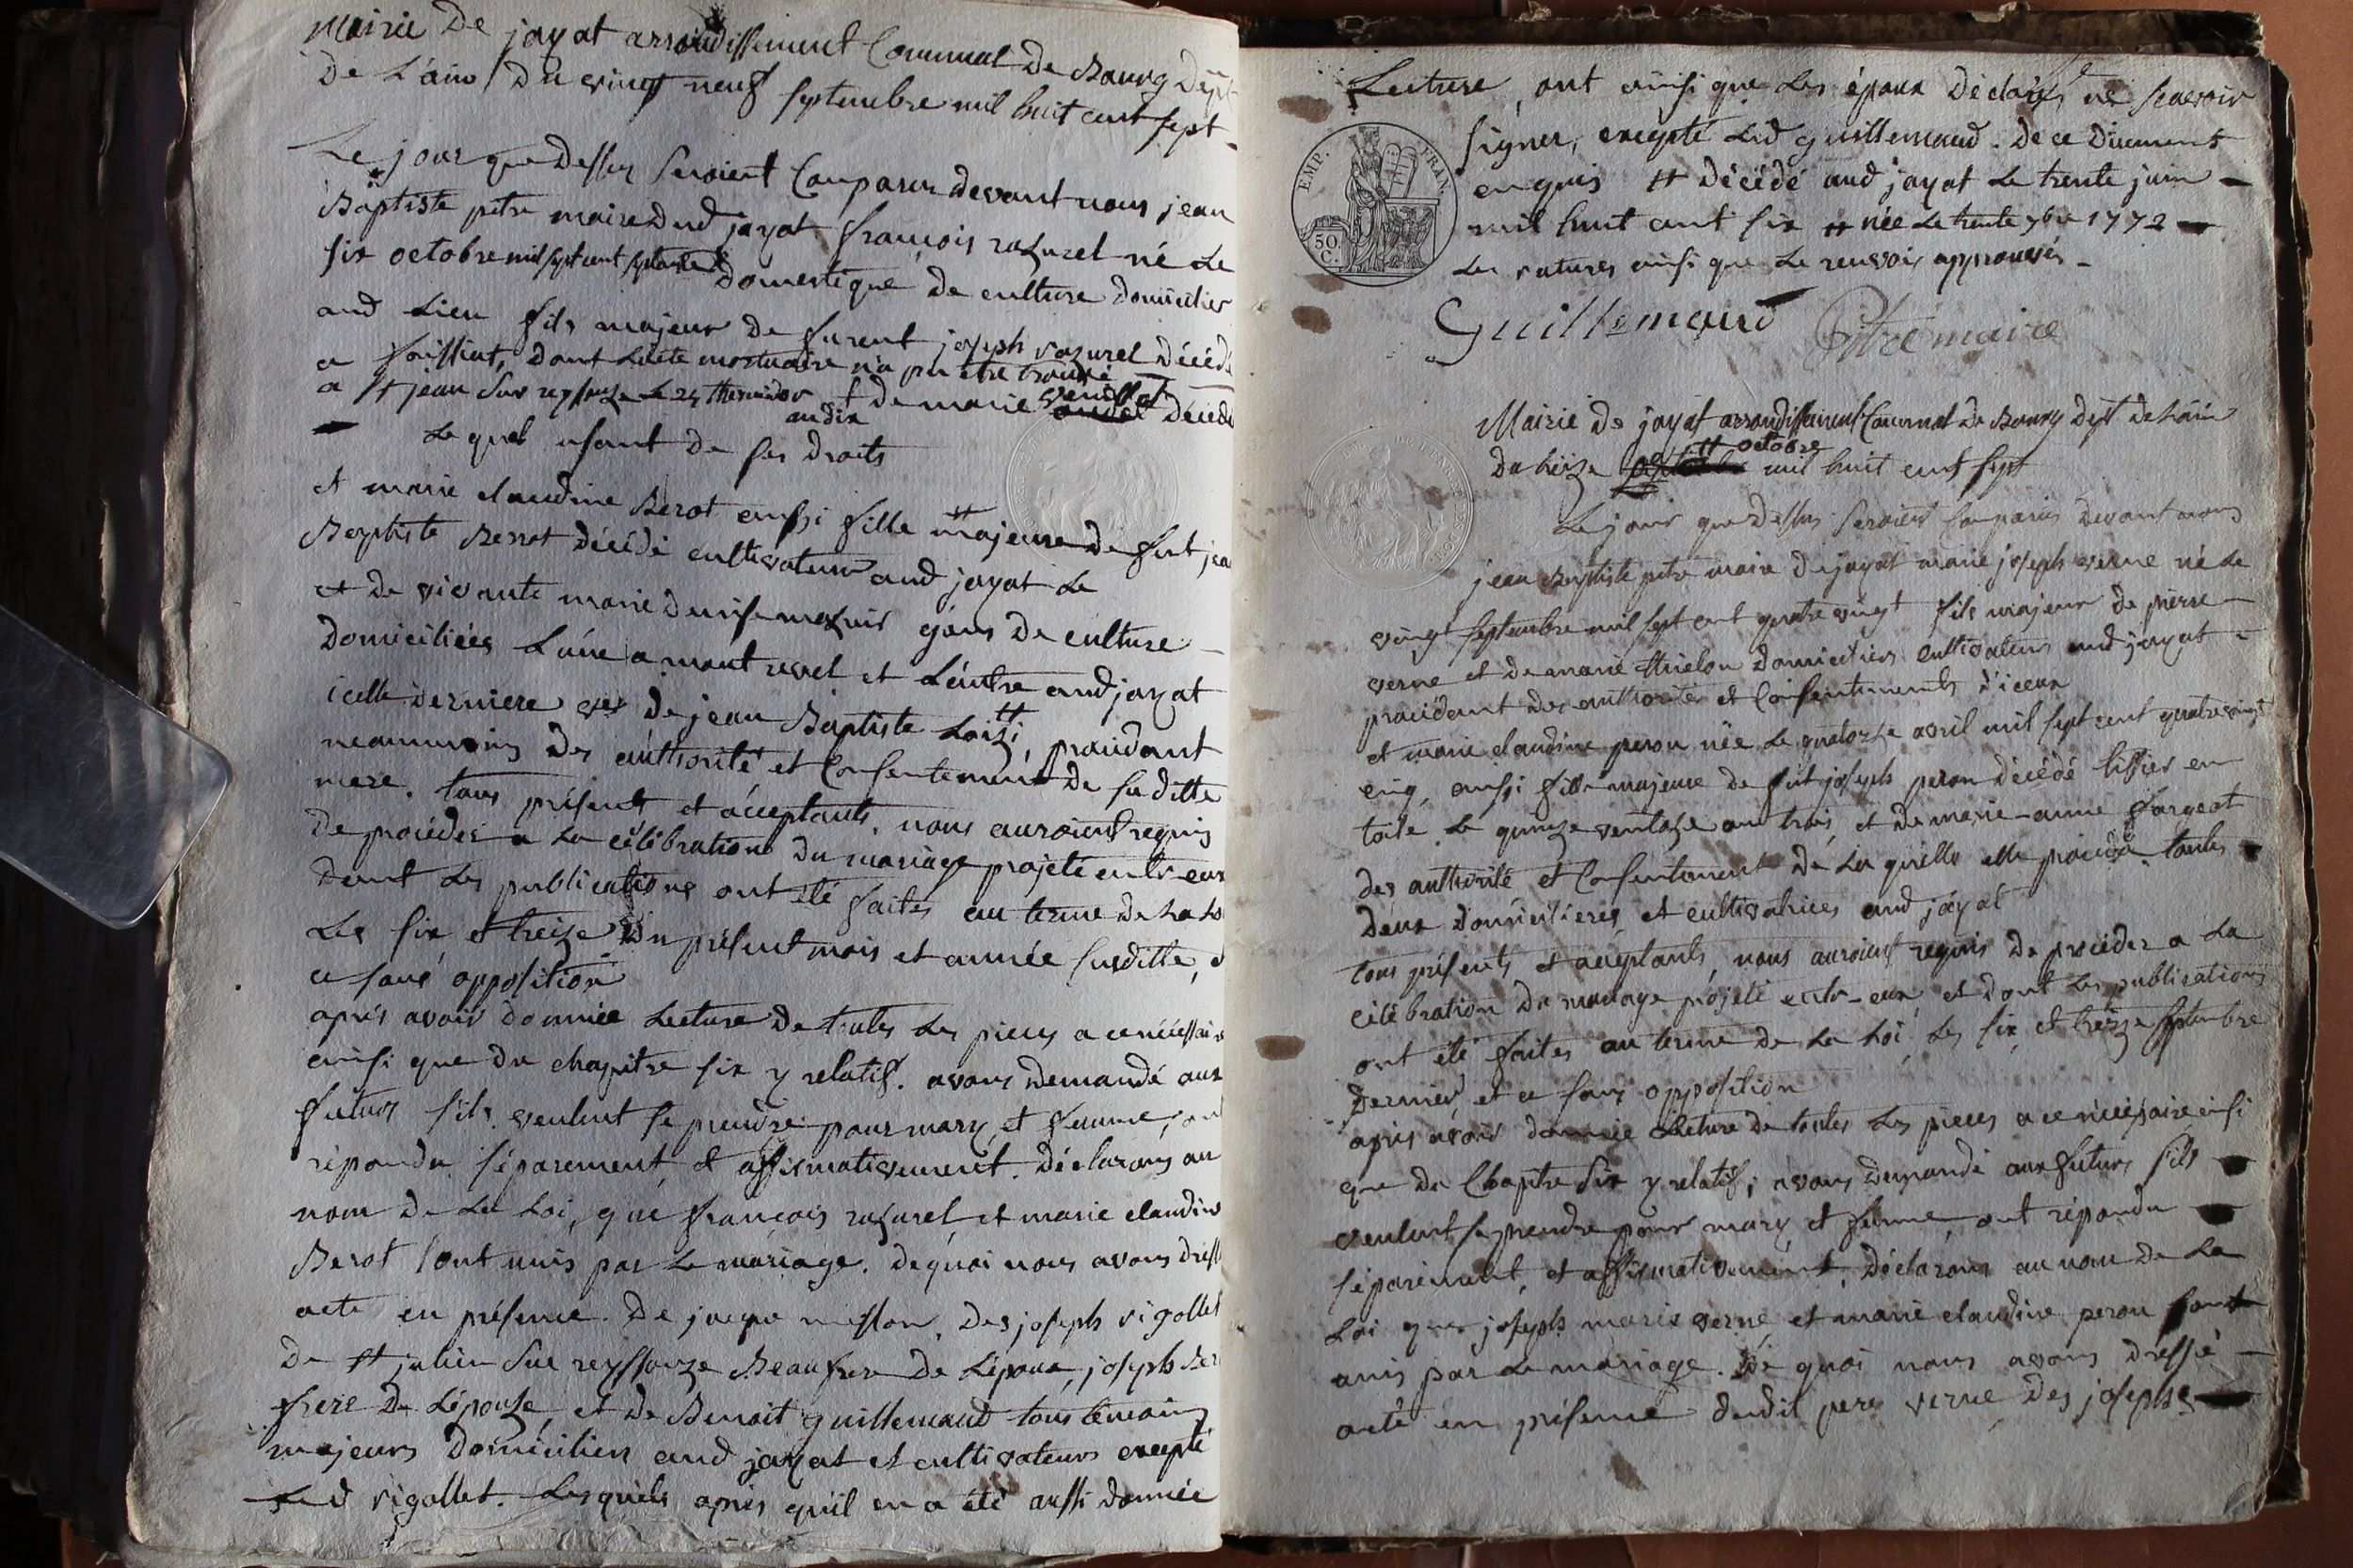 Mairie De jayat arrondissement Communal De Bourg Dept
De L'ain / Du vingt neuf septembre mil huit cent sept
Le jour que Dessus seroient Comparus devant nous jean
Baptiste pitre maire Dud jayat françois razurel né Le
six octobre mil sept cent septante Domestique De culture Domicilier
aud Lieu fils majeur De furent joseph razurel Décédé
a foissiat, Dont L'acte mortuaire n'a pu etre trouvé
a st jean sur reyssouze Le 24 thermidor et De marie vendat Décédée
an dix
Le quel usant De ses Droits
et marie claudine Berot aussi fille majeure De fut jean
Baptiste Berrot Décédé cultivateur aud jayat Le
et De vivante marie Denise gens De culture
Domiciliées L'une a mont revel et L'autre aud jayat
icelle Derniere vve De jean Baptiste Loisi, procédant
neanmoins Des authorité et Consentement De sa ditte
mere. tous présents et acceptants, nous auroient requis
De procéder a La célébration Du mariage projeté entr-eux
Dont Les publications ont été faites au terme De La Loi
Les six et treize Du présent mois et année susditte, et
ce sans opposition
après avoir donnée Lecture De toutes Les pieces a ce nécéssaires
ainsi que Du chapitre six y relatif. avons Demandé aux
futurs s'ils veulent se prendre pour mary et femme, ont
répondu séparement et affirmativement. Déclarons au
nom De La Loi, que françois razurel et marie claudine
Berot sont unis par Le mariage. De quoi nous avons dressé
acte en présence. De jacque Des joseph rigollet
De st julien sur reyssouze Beaufrere De L'époux, joseph Ber
frere De L'épouse, et De Benoit guillemaud tous témoins
majeurs Domiciliers aud jayat et cultivateurs excepté
Led rigollet. Lesquels après qu'il en a été aussi donnée
Lecture, ont ainsi que Les époux Déclarés ne scavoir
signer, excepté Led guillemaud. De ce Duement
EMP. FRAN.
50 C.
enquis # Décédé aud jayat Le trente juin
mil huit cent six # née Le trente 7bre 1772
Les ratures ainsi que Le renvois approuvés
Guillemaud Pitre maire
Mairie De jayat arrondissement Communal De Bourg Dept De L'ain
Du treize octobre mil huit cent sept
Le jour que Dessus seroient Comparus Devant nous
jean Baptiste pitre maire De jayat marie joseph verne né Le
vingt septembre mil sept cent quatre vingt fils majeur De pierre
verne et De marie thielon Domiciliers cultivateurs aud jayat
procédant Des authorités et Consentements D'iceux
et marie claudine peron née Le quatorze avril mil sept cent quatre vingt
cinq, aussi fille majeure De fut joseph peron décédé tissier en
toile Le quinze ventose an trois, et De marie-anne fargeot
Des authorité et Consentement De Laquelle elle procéde. toutes
Deux Domicilieres et cultivatrices aud jayat
tous présents, et acceptants, nous auroient requis De procéder a La
célébration Du mariage projété entr-eux et Dont Les publications
ont été faites au terme De La Loi Les six, et treize septembre
Dernier, et ce sans opposition
après avoir donnée Lecture De toutes Les pieces a ce nécéssaire ainsi
que Du Chapitre six y relatif; avons Demandé aux futurs s'ils
veulent se prendre pour mary et femme, ont répondu
séparément, et affirmativement. Déclarons au nom De La
Loi que joseph marie verne et marie claudine peron sont
unis par Le mariage. De quoi nous avons Dressé
acte en présence Dudit pere verne Des josephs